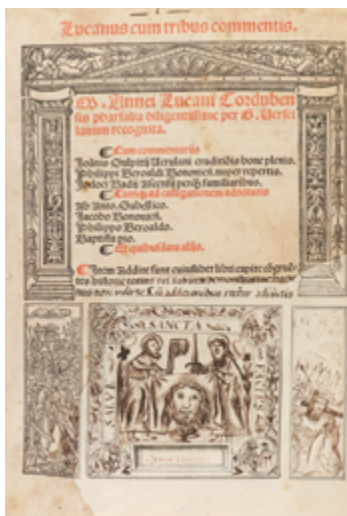 Lucanus cum tribus commentis.
M. Annei Lucani Corduben
sis pharsalia diligentissime per G. Versel
lanum recognita.
Cum commentariis
Joānis Sulpitii Verulani eruditiōis bone plenis.
Philippi Beroaldi Bononieñ. nuper repertis.
Jodoci Badii Ascensii perq̄ familiaribus.
Cumq; ad castigationem adnotatis
Ab Anto. Sabellico.
Jacobo Bononieñ.
Philippo Beroaldo.
Baptista pio.
Et quibusdam aliis.
Item Addite sunt cuiuslibet libri capite
SANCTA
SALVE
FACIES